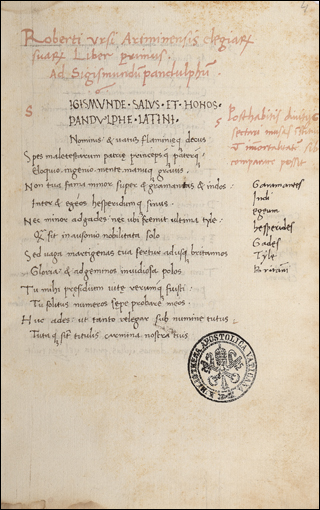 Roberti Ursi Ariminensis elegiarꝝ
suarꝝ Liber primus.
Ad Sigismundū pandulphū.
S
IGISMVNDE SALVS ET HONOS
PANDVLPHE LATINI.
Nominis & uatus flamineq̨ decus
Spes malatestarum patrię princepsq̨ paterq̨
Eloquio. ingenio. mente. manuq̨ grauis.
Non tua fama minor super & gramantas & indos.
Inter & egeos hesperidumq̨ sinus.
Nec minor ad gades nec ubi fremit ultima tyle.
Qᷓ sit in ausonio nobilitata solo
Sed uaga martigenas tua fertur adusq̨ britannos
Gloria. & ad geminos inuidiosa polos.
Tu mihi presidium uitę rerumq̨ fuisti.
Tu solitus numeros sępe probare meos.
Huc ades: ut tanto releger sub numine tutus
Tutaq̨ sit titulis carmina nostra tuis
S
Posthabitis
comparari possit
Garamantes
Indi
egeum
hesperides
Gades
Tyle
Britāni
BIBLIOTHECA APOSTOLICA VATICANA